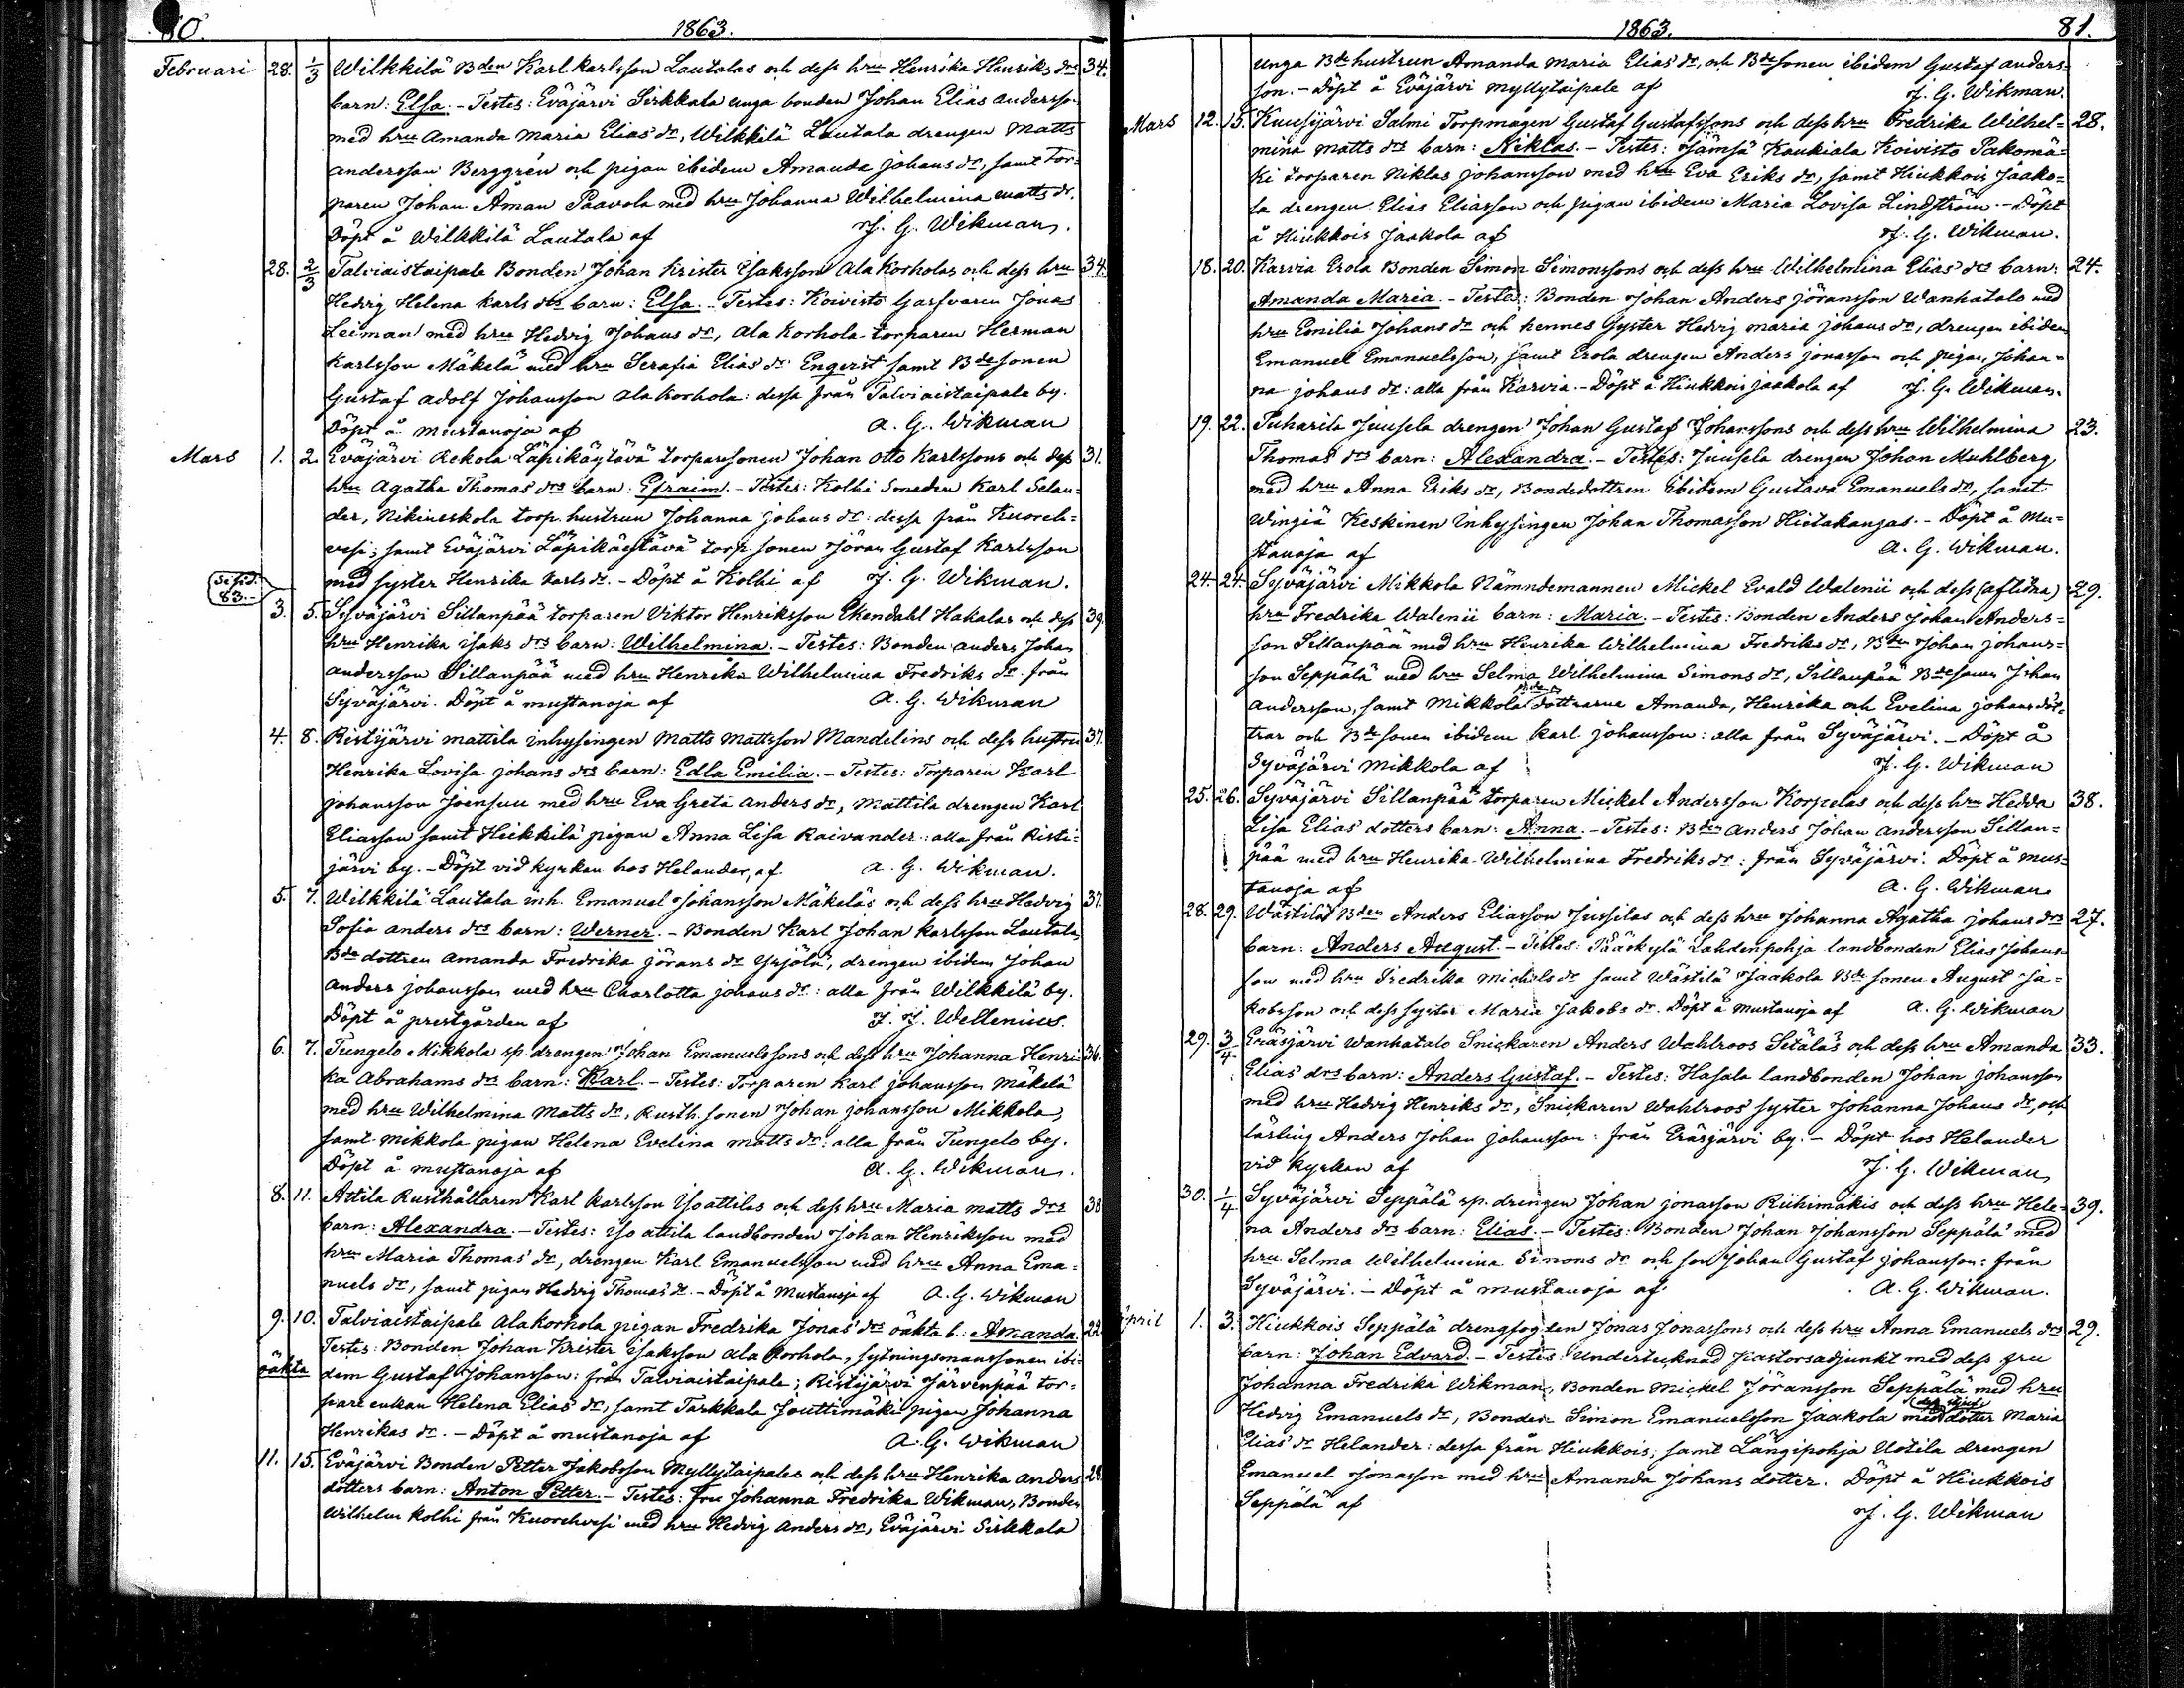 80. 1863.
Februari 28. 1/3 Wilkkilä Bden Karl Karlsson Lautalas och dess hru Henrika Henriks drs 34.
barn: Elsa. - Testes: Eväjärvi Sirkkala unga bonden Johan Elias Andersson
med hru Amanda Maria Elias dr, Wilkkilä Lautala drengen Matts
Andersson Berggrén och pigan ibidem Amanda Johans dr, samt Tor-
paren Johan Åman Paavola med hru Johanna Wilhelmina Matts dr.
Döpt å Wilkkilä Lautala af J. G. Wikman.
28. 2/3 Talviaistaipale Bonden Johan Krister Isaksson Ala Korholas och dess hru 34.
Hedvig Helena Karls drs barn: Elsa. - Testes: Koivisto Garfvaren Jonas
Leiman med hru Hedvig Johans dr, Ala Korhola torparen Herman
Karlsson Mäkelä med hru Serafia Elias dr Engerist samt Bdesonen
Gustaf Adolf Johansson Ala Korhola: dessa från Talviaistaipale by.
Döpt å Mustanoja af A. G. Wikman
Mars 1. 2. Eväjärvi Rekola Läpikäytävä torparesonen Johan Otto Karlssons och dess 31.
hru Agatha Thomas drs barn: Efraim. - Testes: Kolhi Smeden Karl Selan-
der, Nikineskola torp. hustrun Johanna Johans dr: dessa från Kuoreh-
vesi; samt Eväjärvi Läpikäytävä torp. sonen Jöran Gustaf Karlsson
med syster Henrika Karls dr. - Döpt å Kolhi af J. G. Wikman.
se sid. 83.
3. 5. Syväjärvi Sillanpää torparen Viktor Henriksson Ekendahl Hakalas och dess 39.
hru Henrika Isaks drs barn: Wilhelmina. - Testes: Bonden Anders Johan
Andersson Sillanpää med hru Henrika Wilhelmina Fredriks dr: från
Syväjärvi. Döpt å Mustanoja af A. G. Wikman
4. 8. Ristijärvi Mattila inhysingen Matts Mattsson Mandelins och dess hustru 37.
Henrika Lovisa Johans drs barn: Edla Emilia. - Testes: Torparen Karl
Johansson Joensuu med hru Eva Greta Anders dr, Mattila drengen Karl
Eliasson samt Heikkilä pigan Anna Lisa Raivander: alla från Risti-
järvi by. - Döpt vid kyrkan hos Helander, af A. G. Wikman.
5. 7. Wilkkilä Lautala inh. Emanuel Johansson Mäkeläs och dess hru Hedvig 37.
Sofia Anders drs barn: Werner. - Bonden Karl Johan Karlsson Lautala,
Bde dottren Amanda Fredrika Jörans dr Yrjölä, drengen ibidem Johan
Anders Johansson med hru Charlotta Johans dr: alla från Wilkkilä by.
Döpt å prestgården af J. J. Wellenius.
6. 7. Tungelo Mikkola sp. drengen Johan Emanuelssons och dess hru Johanna Henri- 36.
ka Abrahams drs barn: Karl. - Testes: Torparen Karl Johansson Mäkelä
med hru Wilhelmina Matts dr, Rusth. sonen Johan Johansson Mikkola,
samt Mikkola pigan Helena Evelina Matts dr: alla från Tungelo by.
Döpt å Mustanoja af A. G. Wikman.
8. 11. Attila Rusthållaren Karl Karlsson Isoattilas och dess hru Maria Matts drs 38
barn: Alexandra. - Testes: Iso attila landbonden Johan Henriksson med
hru Maria Thomas dr, drengen Karl Emanuelsson med hru Anna Ema-
nuels dr, samt pigan Hedvig Thomas dr. - Döpt å Mustanoja af A. G. Wikman
9. 10. Talviaistaipale Alakorhola pigan Fredrika Jonas drs oäkta b.: Amanda. 22
Testes: Bonden Johan Krister Isaksson Ala Korhola, sytningsmanssonen ibi-
oäkta dem Gustaf Johansson: från Talviaistaipale; Ristijärvi Järvenpää tor-
pare enkan Helena Elias dr, samt Tarkkala Jouttimäki pigan Johanna
Henrikas dr. - Döpt å Mustanoja af A. G. Wikman
11. 15. Eväjärvi Bonden Petter Jakobsson Myllytaipales och dess hru Henrika Anders 28.
dotters barn: Anton Petter. - Testes: Fru Johanna Fredrika Wikman, Bonden
Wilhelm Kolhi från Kuorehvesi med hru Hedvig Anders dr, Eväjärvi Sirkkala
1863. 81.
unga Bde hustrun Amanda Maria Elias dr, och Bdesonen ibidem Gustaf Anders-
son. - Döpt å Eväjärvi Myllytaipale af J. G. Wikman.
Mars 12. 15. Kuusijärvi Salmi Torpmågen Gustaf Gustafssons och dess hru Fredrika Wilhel- 28.
mina Matts drs barn: Niklas. - Testes: Jämsä Kaukiala Koivisto Pakomä-
ki torparen Niklas Johansson med hru Eva Eriks dr, samt Hiukkois Jaako-
la drengen Elias Eliasson och pigan ibidem Maria Lovisa Lindström. - Döpt
å Hiukkois Jaakola af J. G. Wikman.
18. 20. Karvia Erola Bonden Simon Simonssons och dess hru Wilhelmina Elias drs barn: 24.
Amanda Maria. - Testes: Bonden Johan Anders Jöransson Wanhatalo med
hru Emilia Johans dr och hennes syster Hedvig Maria Johans dr, drengen ibidem
Emanuel Emanuelsson, samt Erola drengen Anders Jonasson och pigan Johan-
na Johans dr: alla från Karvia. - Döpt å Hiukkois Jaakola af J. G. Wikman.
19. 22. Juharila Juusela drengen Johan Gustaf Johanssons och dess hru Wilhelmina 23.
Thomas drs barn: Alexandra. - Testes: Juusela drengen Johan Muhlberg
med hru Anna Eriks dr, Bondedottren ibidem Gustava Emanuels dr, samt
Wingiä Keskinen Inhysingen Johan Thomasson Hietakangas. - Döpt å Mu-
stanoja af A. G. Wikman.
24. 24. Syväjärvi Mikkola Nämndemannen Mickel Evald Walenii och dess (aflidna) 29.
hru Fredrika Walenii barn: Maria. - Testes: Bonden Anders Johan Anders-
son Sillanpää med hru Henrika Wilhelmina Fredriks dr, Bden Johan Johans-
son Seppälä med hru Selma Wilhelmina Simons dr, Sillanpää Bdesonen Johan
Andersson, samt Mikkola Bde döttrarna Amanda, Henrika och Evelina Johans döt-
trar och Bdesonen ibidem Karl Johansson: alla från Syväjärvi. - Döpt å
Syväjärvi Mikkola af J. G. Wikman
25. 26. Syväjärvi Sillanpää torparen Mickel Andersson Korpelas och dess hru Hedda 38.
Lisa Elias dotters barn: Anna. - Testes: Bden Anders Johan Andersson Sillan-
pää med hru Henrika Wilhelmina Fredriks dr: från Syväjärvi. Döpt å Mus-
tanoja af A. G. Wikman
28. 29. Wästilä Bden Anders Eliasson Jussilas och dess hru Johanna Agatha Johans drs 27.
barn: Anders August. - Testes: Pääskylä Lahdenpohja landbonden Elias Johans-
son med hru Fredrika Michels dr samt Wästilä Jaakola Bdesonen August Ja-
kobsson och dess syster Maria Jakobs dr. Döpt å Mustanoja af A. G. Wikman
29. 3/4 Eräsjärvi Wanhatalo Snickaren Anders Wahlroos Setäläs och dess hru Amanda 33.
Elias drs barn: Anders Gustaf. - Testes: Hasala landbonden Johan Johansson
med hru Hedvig Henriks dr, Snickaren Wahlroos syster Johanna Johans dr, och
lärling Anders Johan Johansson: från Eräsjärvi by. - Döpt hos Helander
vid kyrkan af J. G. Wikman
30. 1/4 Syväjärvi Seppälä sp. drengen Johan Jonasson Riihimäkis och dess hru Hele- 39.
na Anders drs barn: Elias. - Testes: Bonden Johan Johansson Seppälä med
hru Selma Wilhelmina Simons dr och son Johan Gustaf Johansson: från
Syväjärvi. - Döpt å Mustanoja af A. G. Wikman.
April 1. 3. Hiukkois Seppälä drengfogden Jonas Jonassons och dess hru Anna Emanuels drs 29.
barn: Johan Edvard. - Testes: Undertecknad Pastorsadjunkt med dess fru
Johanna Fredrika Wikman, Bonden Mickel Jöransson Seppälä med hru
Hedvig Emanuels dr, Bonden Simon Emanuelsson Jaakola med dess stjuf dotter Maria
Elias dr Helander: dessa från Hiukkois; samt Längipohja Uotila drengen
Emanuel Jonasson med hru Amanda Johans dotter. Döpt å Hiukkois
Seppälä af J. G. Wikman